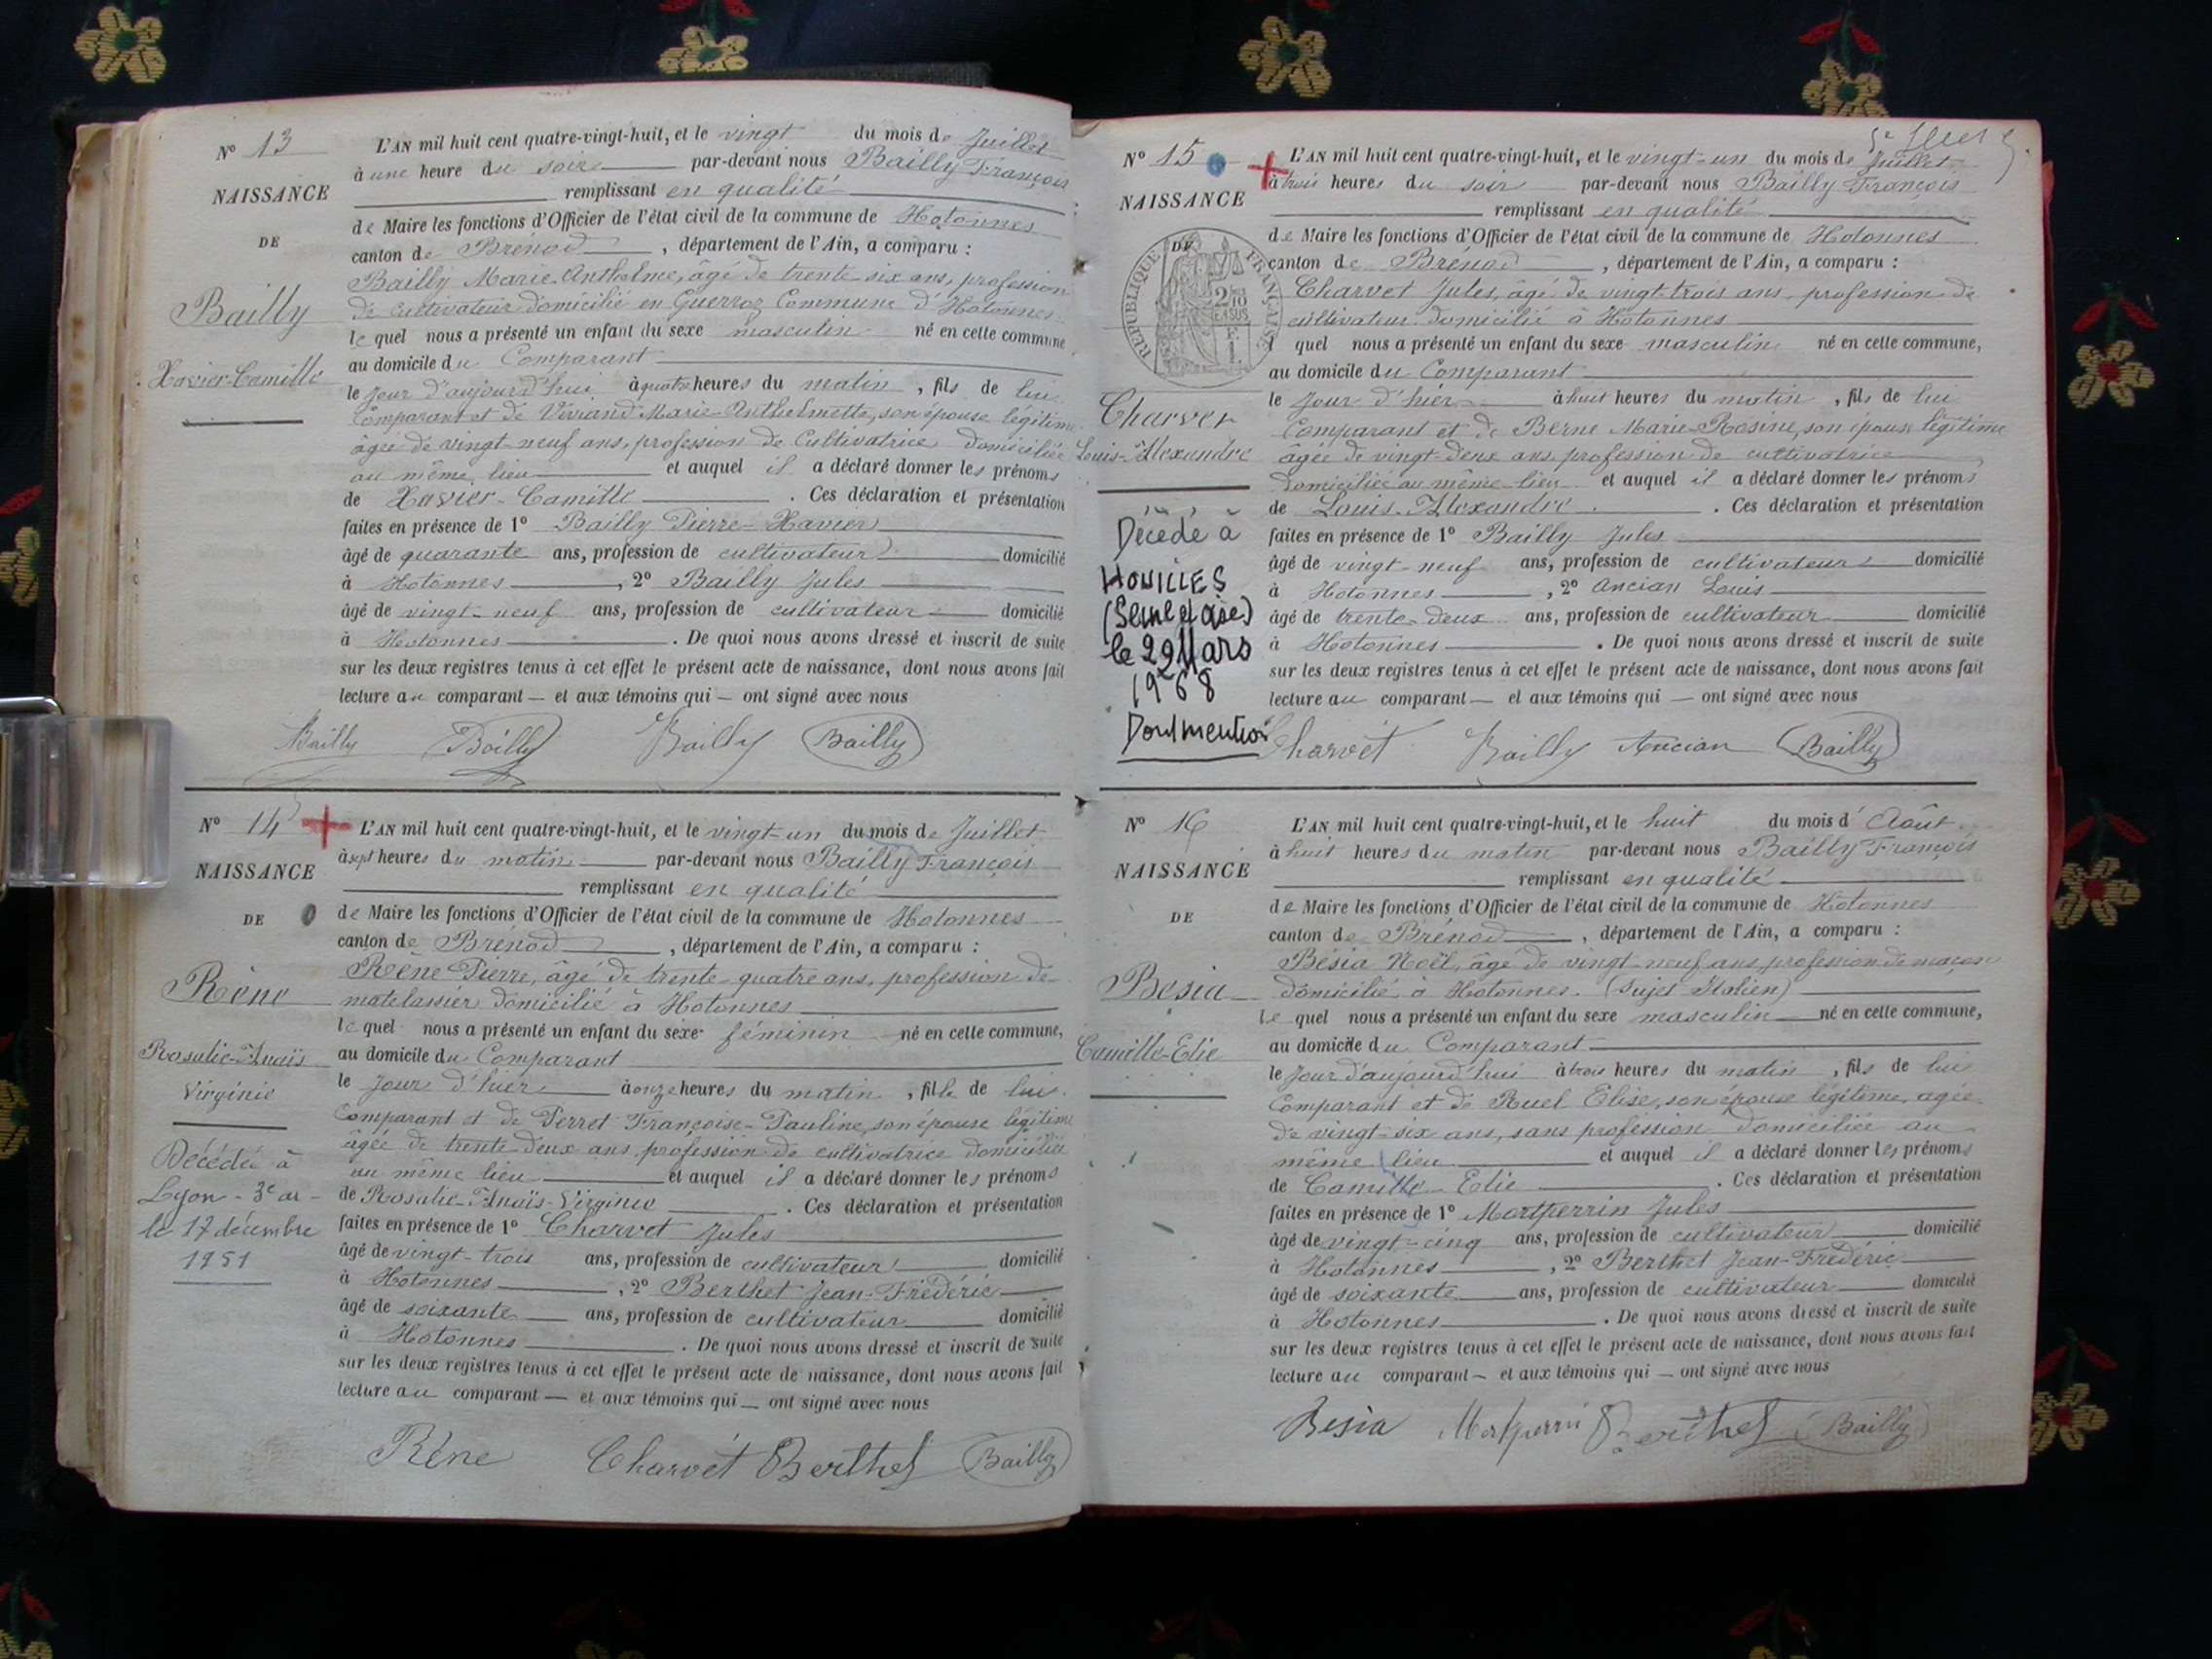 N° 13
NAISSANCE
DE
Bailly
Xavier-Camille
L'AN mil huit cent quatre-vingt-huit, et le vingt du mois de Juillet
à une heure du soir par-devant nous Bailly François
remplissant en qualité
de Maire les fonctions d'Officier de l'état civil de la commune de Hotonnes
canton de Brénod, département de l'Ain, a comparu :
Bailly Marie-Anthelme, âgé de trente-six ans, profession
de cultivateur domicilié en Guerroz Commune d'Hotonnes
le quel nous a présenté un enfant du sexe masculin né en cette commune
au domicile du Comparant
le jour d'aujourd'hui à quatre heures du matin, fils de lui
Comparant et de Viviand Marie Anthelmette, son épouse légitime
âgée de vingt-neuf ans, profession de Cultivatrice domiciliée
au même lieu et auquel il a déclaré donner les prénoms
de Xavier-Camille. Ces déclaration et présentation
faites en présence de 1° Bailly Pierre-Xavier
âgé de quarante ans, profession de cultivateur domicilié
à Hotonnes, 2° Bailly Jules
âgé de vingt-neuf ans, profession de cultivateur domicilié
à Hotonnes. De quoi nous avons dressé et inscrit de suite
sur les deux registres tenus à cet effet le présent acte de naissance, dont nous avons fait
lecture au comparant — et aux témoins qui — ont signé avec nous
Bailly Bailly Bailly Bailly
N° 14
NAISSANCE
DE
Rène
Rosalie-Anaïs
Virginie
Décédée à
Lyon - 3e ar -
le 17 décembre
1951
L'AN mil huit cent quatre-vingt-huit, et le vingt-un du mois de Juillet
à sept heures du matin par-devant nous Bailly François
remplissant en qualité
de Maire les fonctions d'Officier de l'état civil de la commune de Hotonnes
canton de Brénod, département de l'Ain, a comparu :
Rène Pierre, âgé de trente-quatre ans, profession de
matelassier domicilié à Hotonnes
le quel nous a présenté un enfant du sexe féminin né en cette commune,
au domicile du Comparant
le jour d'hier à onze heures du matin, fille de lui
Comparant et de Perret Françoise-Pauline, son épouse légitime
âgée de trente-deux ans, profession de cultivatrice domiciliée
au même lieu et auquel il a déclaré donner les prénoms
de Rosalie-Anaïs-Virginie. Ces déclaration et présentation
faites en présence de 1° Charvet Jules
âgé de vingt-trois ans, profession de cultivateur domicilié
à Hotonnes, 2° Berthet Jean-Frédéric
âgé de soixante ans, profession de cultivateur domicilié
à Hotonnes. De quoi nous avons dressé et inscrit de suite
sur les deux registres tenus à cet effet le présent acte de naissance, dont nous avons fait
lecture au comparant — et aux témoins qui — ont signé avec nous
Rène Charvet Berthet Bailly
N° 15
NAISSANCE
DE
REPUBLIQUE FRANÇAISE
2/10
EN SUS
Charvet
Louis-Alexandre
Décédé à
HOUILLES
(Seine et Oise)
le 29 Mars
1968
Dont mention
L'AN mil huit cent quatre-vingt-huit, et le vingt-un du mois de Juillet
à trois heures du soir par-devant nous Bailly François
remplissant en qualité
de Maire les fonctions d'Officier de l'état civil de la commune de Hotonnes
canton de Brénod, département de l'Ain, a comparu :
Charvet Jules, âgé de vingt-trois ans, profession de
cultivateur domicilié à Hotonnes
quel nous a présenté un enfant du sexe masculin né en cette commune,
au domicile du Comparant
le jour d'hier à huit heures du matin, fils de lui
Comparant et de Berne Marie-Rosine, son épouse légitime
âgée de vingt-deux ans, profession de cultivatrice
domiciliée au même lieu et auquel il a déclaré donner les prénoms
de Louis-Alexandre. Ces déclaration et présentation
faites en présence de 1° Bailly Jules
âgé de vingt-neuf ans, profession de cultivateur domicilié
à Hotonnes, 2° Ancian Louis
âgé de trente-deux ans, profession de cultivateur domicilié
à Hotonnes. De quoi nous avons dressé et inscrit de suite
sur les deux registres tenus à cet effet le présent acte de naissance, dont nous avons fait
lecture au comparant — et aux témoins qui — ont signé avec nous
Charvet Bailly Ancian Bailly
N° 16
NAISSANCE
DE
Bésia
Camille-Elie
L'AN mil huit cent quatre-vingt-huit, et le huit du mois d'Août
à huit heures du matin par-devant nous Bailly François
remplissant en qualité
de Maire les fonctions d'Officier de l'état civil de la commune de Hotonnes
canton de Brénod, département de l'Ain, a comparu :
Bésia Noël, âgé de vingt-neuf ans, profession de maçon
domicilié à Hotonnes. (Sujet Italien)
le quel nous a présenté un enfant du sexe masculin né en cette commune,
au domicile du Comparant
le jour d'aujourd'hui à trois heures du matin, fils de lui
Comparant et de Ruel Elise, son épouse légitime, agée
de vingt-six ans, sans profession domiciliée au
même lieu et auquel il a déclaré donner les prénoms
de Camille-Elie. Ces déclaration et présentation
faites en présence de 1° Mortperrin Jules
âgé de vingt-cinq ans, profession de cultivateur domicilié
à Hotonnes, 2° Berthet Jean-Frédéric
âgé de soixante ans, profession de cultivateur domicilié
à Hotonnes. De quoi nous avons dressé et inscrit de suite
sur les deux registres tenus à cet effet le présent acte de naissance, dont nous avons fait
lecture au comparant — et aux témoins qui — ont signé avec nous
Besia Mortperrin Berthet Bailly